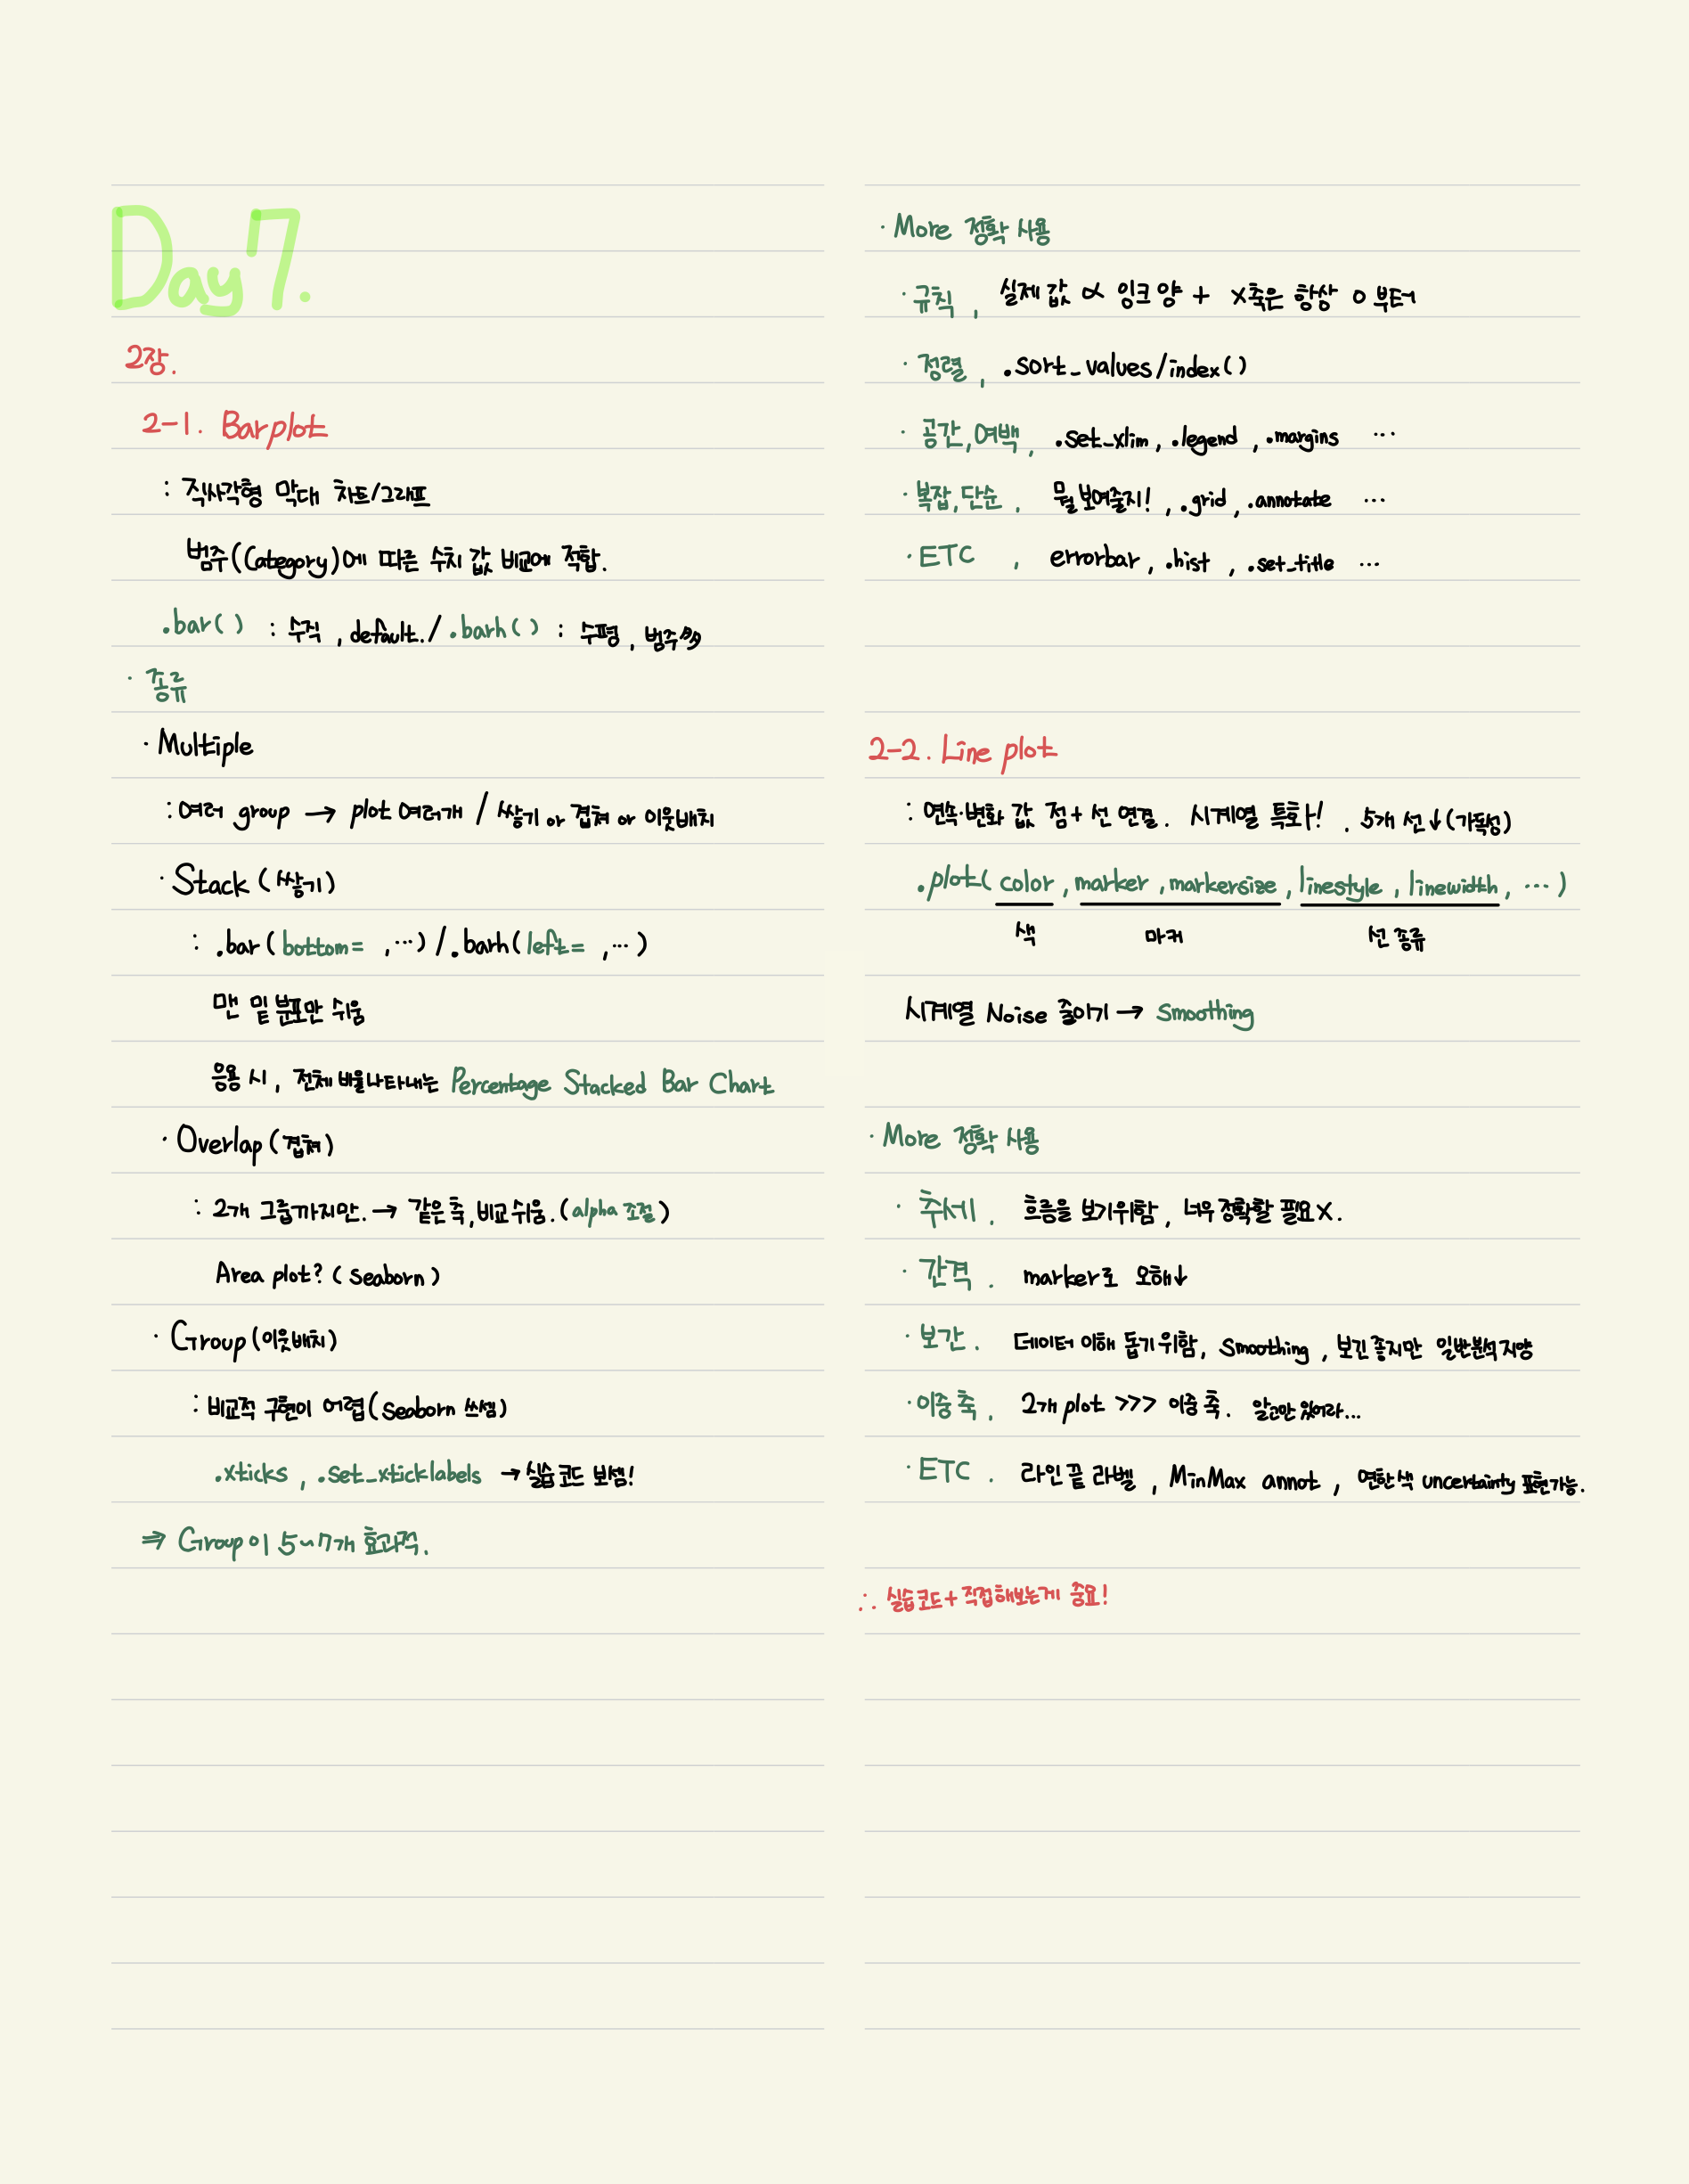 Day 7.
2장.
2-1. Barplot
: 직사각형 막대 차트/그래프
범주(Category)에 따른 수치 값 비교에 적합.
.bar() : 수직, default. / .barh() : 수평, 범주多
· 종류
· Multiple
: 여러 group → plot 여러개 / 쌓기 or 겹쳐 or 이웃배치
· Stack (쌓기)
: .bar( bottom= , ⋯) / .barh( left= , ⋯)
맨 밑 분포만 쉬움
응용 시, 전체 비율나타내는 Percentage Stacked Bar Chart
· Overlap (겹쳐)
: 2개 그룹까지만. → 같은 축, 비교 쉬움. (alpha 조절)
Area plot? (seaborn)
· Group (이웃배치)
: 비교적 구현이 어렵 (Seaborn 쓰셈)
.xticks, .set_xticklabels → 실습 코드 보셈!
⇒ Group이 5~7개 효과적.
· More 정확 사용
· 규칙, 실제 값 ∝ 잉크 양 + X축은 항상 0 부터
· 정렬, .sort_values/index()
· 공간, 여백, .set_xlim, .legend, .margins ⋯
· 복잡, 단순, 뭘 보여줄지!, .grid, .annotate ⋯
· ETC , errorbar, .hist, .set_title ⋯
2-2. Line plot
: 연속·변화 값 점 + 선 연결. 시계열 특화!. 5개 선↓(가독성)
.plot( color, marker, markersize, linestyle, linewidth, ⋯ )
색 마커 선 종류
시계열 Noise 줄이기 → Smoothing
· More 정확 사용
· 추세. 흐름을 보기위함, 너무 정확할 필요X.
· 간격. marker로 오해↓
· 보간. 데이터 이해 돕기 위함, Smoothing, 보긴 좋지만 일반분석 지양
· 이중 축. 2개 plot >>> 이중 축. 알고만 있어라...
· ETC. 라인 끝 라벨, MinMax annot, 연한색 uncertainty 표현가능.
∴ 실습코드 + 직접해보는게 중요!